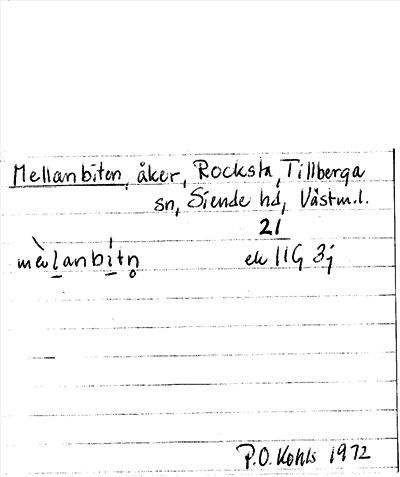 Mellanbiten, åker, Rocksta, Tillberga
sn, Siende hd, Västm.l.
21
mèlanbítn̥ ek 11G 3j
P.O. Kohls 1972